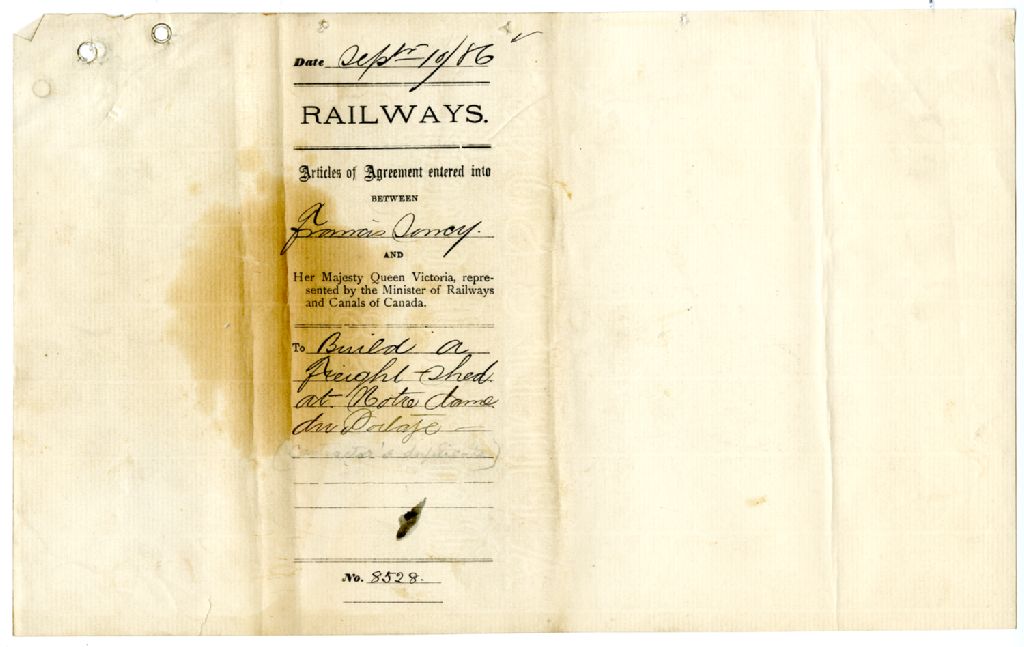 Date Septr 10/86
RAILWAYS.
Articles of Agreement entered into
BETWEEN
Francis
AND
Her Majesty Queen Victoria, repre-
sented by the Minister of Railways
and Canals of Canada.
To Build a
freight shed
at Notre dame
du Portage
(Contractor's duplicate)
No. 8528.